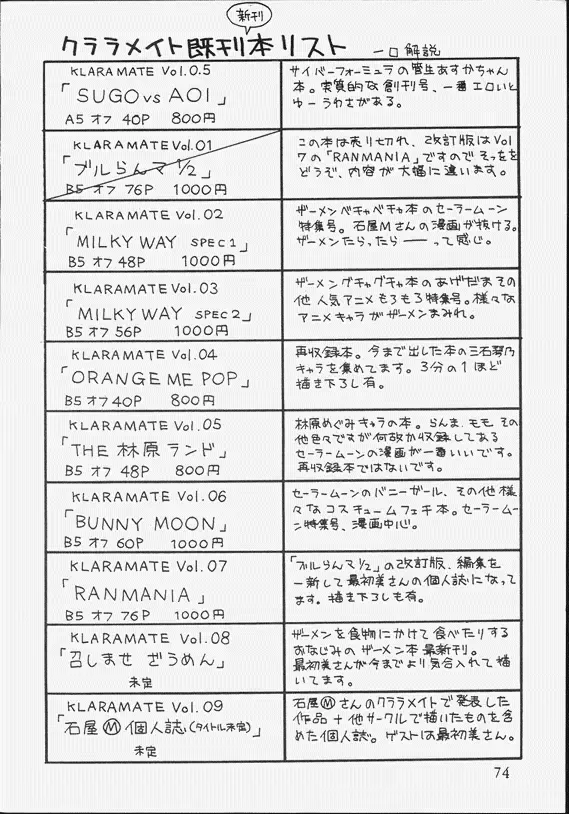 新刊
クララメイト既刊本リスト 一口解説
KLARAMATE Vol.0.5
「SUGO vs AOI」
A5 オフ 40P 800円
サイバーフォーミュラの菅生あすかちゃん
本。実質的な創刊号、一番エロいと
ゆーうわさがある。
KLARAMATE Vol.01
「ブルらんマ1/2」
B5 オフ 76P 1000円
この本は売り切れ、改訂版はVol
7の「RANMANIA」ですのでそっちを
どうぞ、内容が大幅に違います。
KLARAMATE Vol.02
「MILKY WAY SPEC1」
B5 オフ 48P 1000円
ザーメンベチャベチャ本のセーラームーン
特集号。石屋Mさんの漫画が抜ける。
ザーメンたら,たら――って感じ。
KLARAMATE Vol.03
「MILKY WAY SPEC2」
B5 オフ 56P 1000円
ザーメングチャグチャ本のあげだまその
他人気アニメもろもろ特集号。様々な
アニメキャラがザーメンまみれ。
KLARAMATE Vol.04
「ORANGE ME POP」
B5 オフ 40P 800円
再収録本。今まで出した本の三石琴乃
キャラを集めてます。3分の1ほど
描き下ろし有。
KLARAMATE Vol.05
「THE 林原ランド」
B5 オフ 48P 800円
林原めぐみキャラの本。らんま、モモ、その
他色々ですが何故か収録してある
セーラームーンの漫画が一番いいです。
再収録本ではないです。
KLARAMATE Vol.06
「BUNNY MOON」
B5 オフ 60P 1000円
セーラームーンのバニーガール、その他様
々なコスチュームフェチ本。セーラームー
ン特集号、漫画中心。
KLARAMATE Vol.07
「RANMANIA」
B5 オフ 76P 1000円
「ブルらんマ1/2」の改訂版、編集を
一新して最初美さんの個人誌になって
ます。描き下ろしも有。
KLARAMATE Vol.08
「召しませ ざうめん」
未定
ザーメンを食物にかけて食べたりする
おなじみのザーメン本最新刊。
最初美さんが今までより気合入れて描
いてます。
KLARAMATE Vol.09
「石屋Ⓜ個人誌(タイトル未定)」
未定
石屋Ⓜさんのクララメイトで発表した
作品+他サークルで描いたものを含
めた個人誌。ゲストは最初美さん。
74